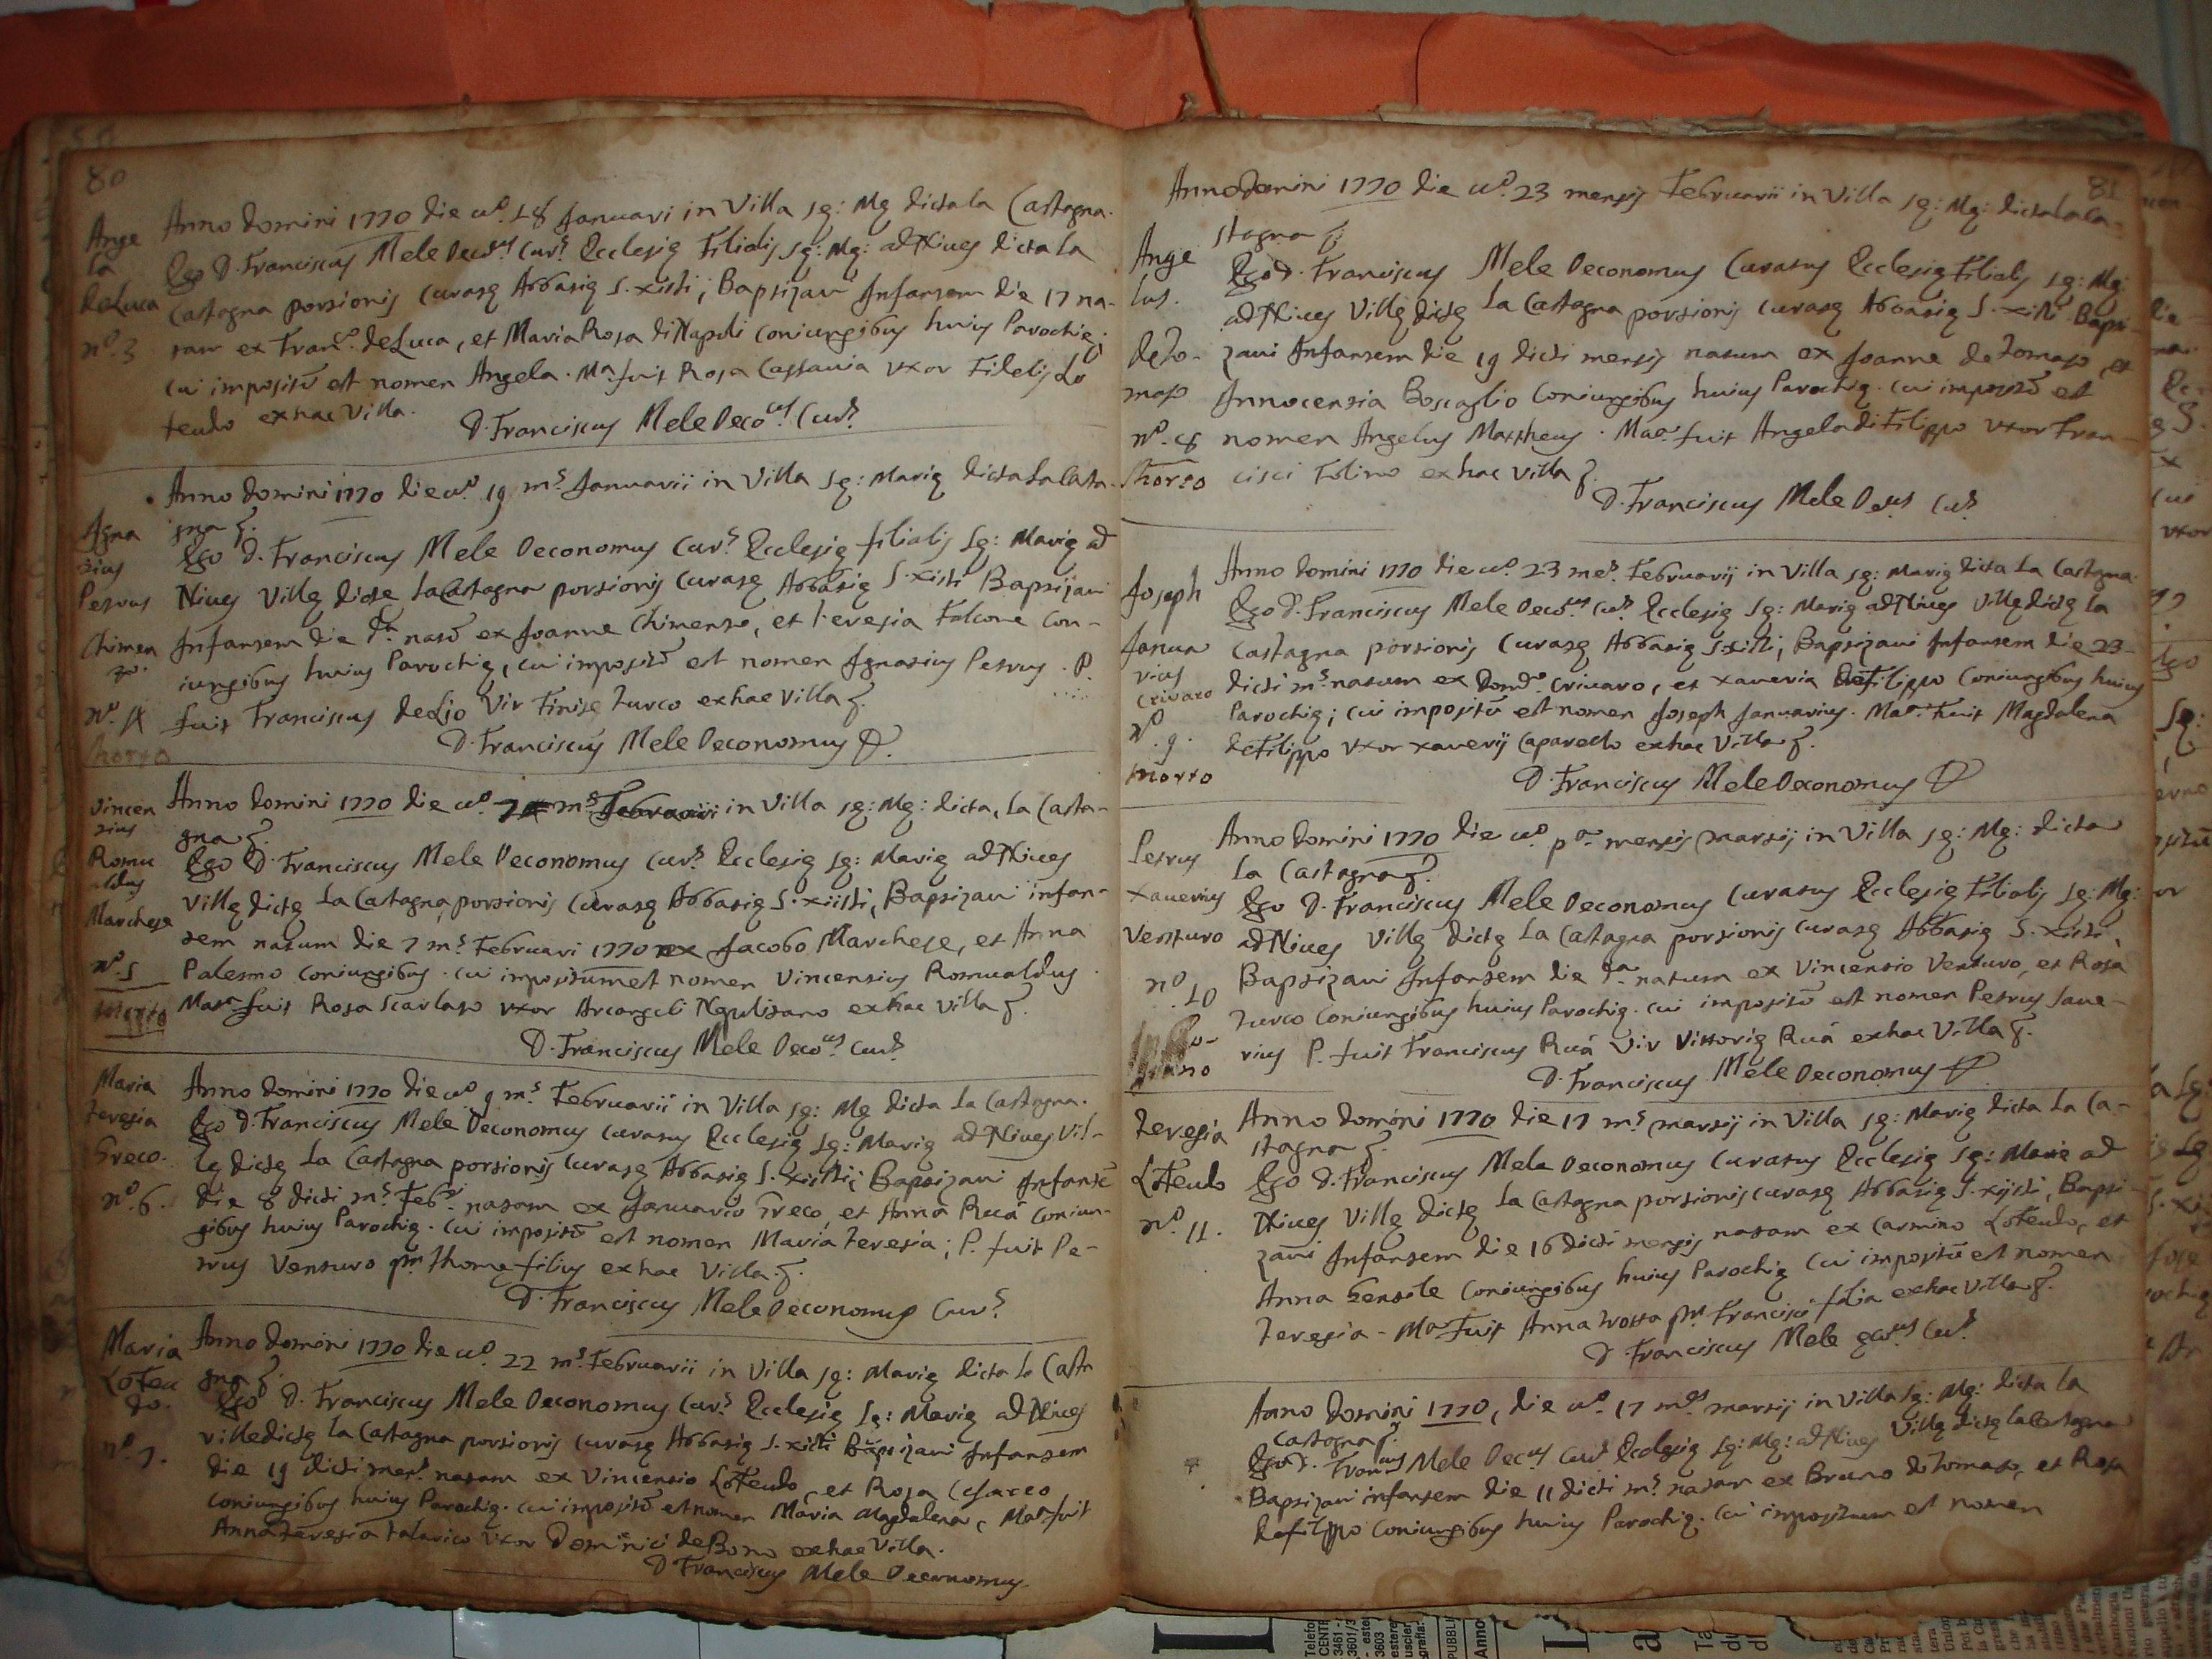 80
Ange
la
deLuca
nº. 3
Anno Domini 1770 die uº. 18 Januari in Villa sę: Mę dicta la Castagna.
Ego D. Franciscus Mele Oeco.us Cur.s Ecclesię Filialis Sę: Mę: ad Nives dicta La
Castagna portionis Curatę Abbatię S. Xisti; Baptizavi Infantem die 17 na-
tam ex Fran.co deLuca, et Maria Rosa diNapoli coniungibus huius Parochię;
cui impositū est nomen Angela. Ma. fuit Rosa Castauia Vxor Fidelis Lo
feudo ex hac Villa.
D. Franciscus Mele Oeco.us Cur.s
Igna
tius
Petrus
Chimen
zo.
Nº. 4
Morto
Anno Domini 1770 die uº. 19 m.s Januarii in Villa Sę: Marię dicta La Casta-
gna
Ego D. Franciscus Mele Oeconomus Cur.s Ecclesię filialis Sę: Marię ad
Nives Villę dictę La Castagna portionis Curatę Abbatię S. Xisti Baptizavi
Infantem die d.a natū ex Joanne Chimenzo, et Teresia Falcone Con-
iungibus huius Parochię, cui impositū est nomen Ignatius Petrus. P.
fuit Franciscus deLio Vir Finisę Turco ex hac Villa
D. Franciscus Mele Oeconomus
Vincen
tius
Romu
aldus
Marchese
Nº. 5
Morto
Anno Domini 1770 die uº. m.s Februarii in Villa sę: Mę: dicta, La Casta-
gna
Ego D. Franciscus Mele Oeconomus Cur.s Ecclesię sę: Marię ad Nives
Villę dictę La Castagna portionis Curatę Abbatię S. Xisti, Baptizavi infan-
tem natum die 7 m.s Februari 1770 ex Jacobo Marchese, et Anna
Palermo Coniungibus. cui impositum est nomen Vincentius Romualdus.
Mata. fuit Rosa Scarlato Vxor Arcangeli ex hac Villa
D. Franciscus Mele Oeco.us Cur.s
Maria
Teresia
Greco.
Nº. 6.
Anno Domini 1770 die uº 9 m.s Februarii in Villa sę: Mę dicta La Castagna.
Ego D. Franciscus Mele Oeconomus Curatus Ecclesię Sę: Marię ad Nives Vil-
lę dictę La Castagna portionis Curatę Abbatię S. Xisti; Baptizavi Infantē
die 8 dicti m.s Feb.ri natam ex Januario Greco, et Anna Ruá Coniun-
gibus huius Parochię. cui impositū est nomen Maria Teresia; P. fuit Pe-
trus Venturo qm Thomę filius ex hac Villa
D. Franciscus Mele Oeconomus Cur.s
Maria
Lofeu
do.
Nº. 7.
Anno Domini 1770 die uº. 22 m.s Februarii in Villa sę: Marię dicta La Casta
gna
Ego D. Franciscus Mele Oeconomus Cur.s Ecclesię Sę: Marię ad Nives
Villę dictę La Castagna portionis Curatę Abbatię S. Xisti Baptizavi Infantem
die 19 dicti men.s natam ex Vincentio Lofeudo, et Rosa
Coniungibus huius Parochię. cui impositū est nomen Maria Magdalena, Ma. fuit
Anna Teresia Talarico Vxor Dominici deBono ex hac Villa.
D. Franciscus Mele Oeconomus.
81
Ange
lus.
deTo-
maso
Nº. 8
Morto
Anno Domini 1770 die uº 23 mensis Februarii in Villa sę: Mę: dicta La Ca-
stagna
Ego D. Franciscus Mele Oeconomus Curatus Ecclesię Filialis sę: Mę:
ad Nives Villę dictę La Castagna portionis Curatę Abbatię S. Xisti. Bapti-
zavi Infantem die 19 dicti mensis natum ex Joanne deTomaso, et
Innocentia Boscaglio Coniungibus huius Parochię. cui impositū est
nomen Angelus Mattheus. Maa. fuit Angela diFilippo Vxor Fran-
cisci Folino ex hac Villa
D. Franciscus Mele Oe.us Cur.s
Joseph
Janua
rius
Crivaro
Nº. 9.
Morto
Anno Domini 1770 die uº. 23 me.s Februarij in Villa sę: Marię dicta La Castagna.
Ego D. Franciscus Mele Oeco.us Cur.s Ecclesię Sę: Marię ad Nives Villę dictę La
Castagna portionis Curatę Abbatię S. Xisti, Baptizavi Infantem die 23
dicti m.s natum ex Dom.co Crivaro, et Xaveria deFilippo Coniungibus huius
Parochię; cui impositū est nomen Joseph Januarius. Maa. Fuit Magdalena
deFilippo Vxor Xaverij Caparello ex hac Villa
D. Franciscus Mele Oeconomus
Petrus
Xaverius
Venturo
nº
.10
Anno Domini 1770 die uº. p.a mensis Martij in Villa sę: Mę: dicta
La Castagna
Ego D. Franciscus Mele Oeconomus Curatus Ecclesię Filialis sę: Mę:
ad Nives Villę dictę La Castagna portionis Curatę Abbatię S. Xisti,
Baptizavi Infantem die d.a natum ex Vincentio Venturo, et Rosa
Turco Coniungibus huius Parochię. cui impositū est nomen Petrus Save-
rius P. fuit Franciscus Ruá Vir Vittorię Ruá ex hac Villa
D. Franciscus Mele Oeconomus
Teresia
Lofeudo
nº. 11.
Anno Domini 1770 die 17 m.s Martij in Villa sę: Marię dicta La Ca-
stagna
Ego D. Franciscus Mele Oeconomus Curatus Ecclesię Sę: Marię ad
Nives Villę dictę La Castagna portionis Curatę Abbatię S. Xijsti, Bapti-
zavi Infantem die 16 dicti mensis natam ex Carmino Lofeudo, et
Anna Gentile Coniungibus huius Parochię cui impositū est nomen
Teresia - Ma. Fuit Anna Trotta qm Francisci filia ex hac Villa
D. Franciscus Mele Oeco.us Cur.s
Anno Domini 1770, die uº. 17 m.s Martij in Villa Sę: Mę: dicta La
Castagna
Ego D. Fran.cus Mele Oec.us Cur.s Ecclesię Sę: Mę: ad Nives Villę dictę La Castagna
Baptizavi infantem die 11 dicti m.s natam ex Bruno deTomaso, et Rosa
deFilippo Coniungibus huius Parochię. cui impositum est nomen